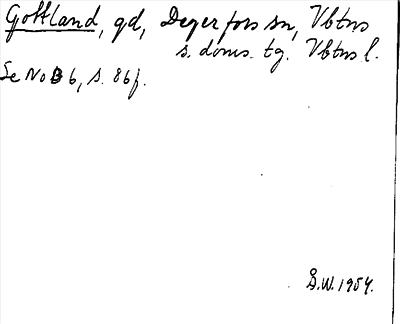 Gottland, gd, Degerfors sn, Vbtns
s. doms. tg. Vbtns l.
Se NoB 6, s. 86f.
S.W. 1954.